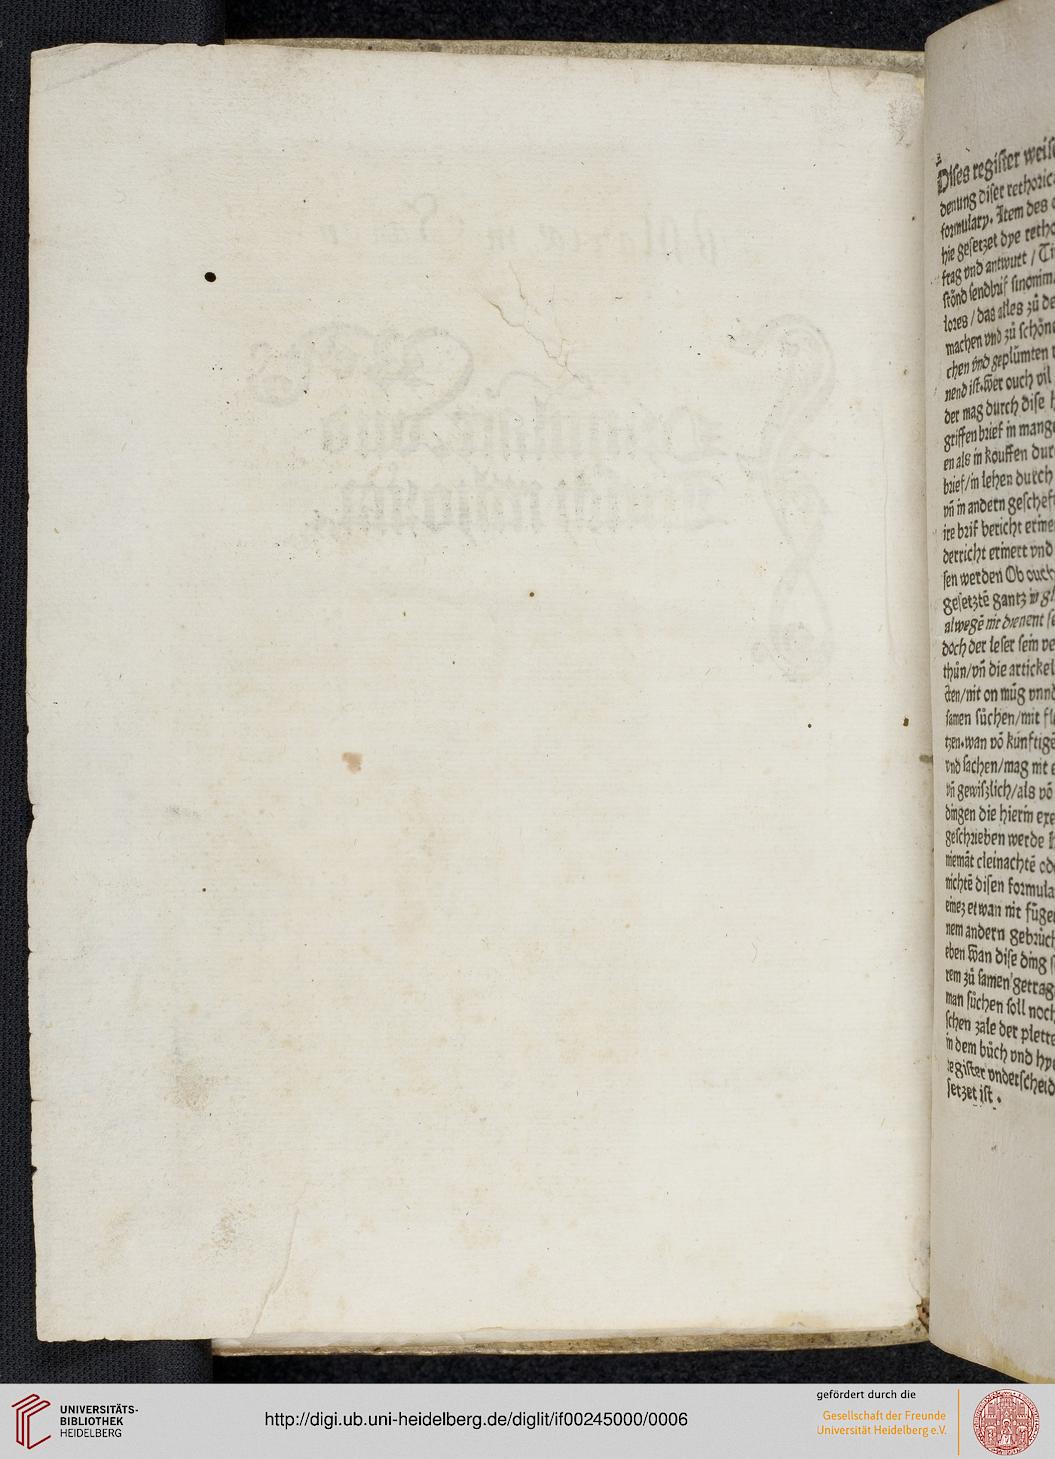 Dises register weis
denung diser rethoric
formulary. Item des
hie gesetzet dye retho
frag vnd antwurt / Ti
stõnd sendbrif sinonim
lores / das alles zů de
machen vnd zů schöne
chen vnd geplümten
nend ist. wer ouch vil
der mag durch dise
griffen brief in mang
en als in kouffen dur
brief / in lehen durch
vñ in andern geschef
ire brif bericht erine
derricht erinert vnd
sen werden Ob ouch
gesetztẽ gantz in gl
alwegẽ nit dienent se
doch der leser sein ve
thůn / vñ die artickel
cten / nit on müg vnnd
samen sůchen / mit fl
tzen. wan võ künftigẽ
vnd sachen / mag nit e
vñ gewiszlich / als võ
dingen die hierin exe
geschrieben werde
niemãt cleinachtẽ od
nichtẽ disen formula
einez etwan nit füge
nem andern gebrüch
eben wan dise ding s
rem zů samen getrag
man sůchen soll noch
schen zale der plette
in dem bůch vnd hye
register vnderscheid
setzet ist.
UNIVERSITÄTS-
BIBLIOTHEK
HEIDELBERG
http://digi.ub.uni-heidelberg.de/diglit/if00245000/0006
gefördert durch die
Gesellschaft der Freunde
Universität Heidelberg e.V.